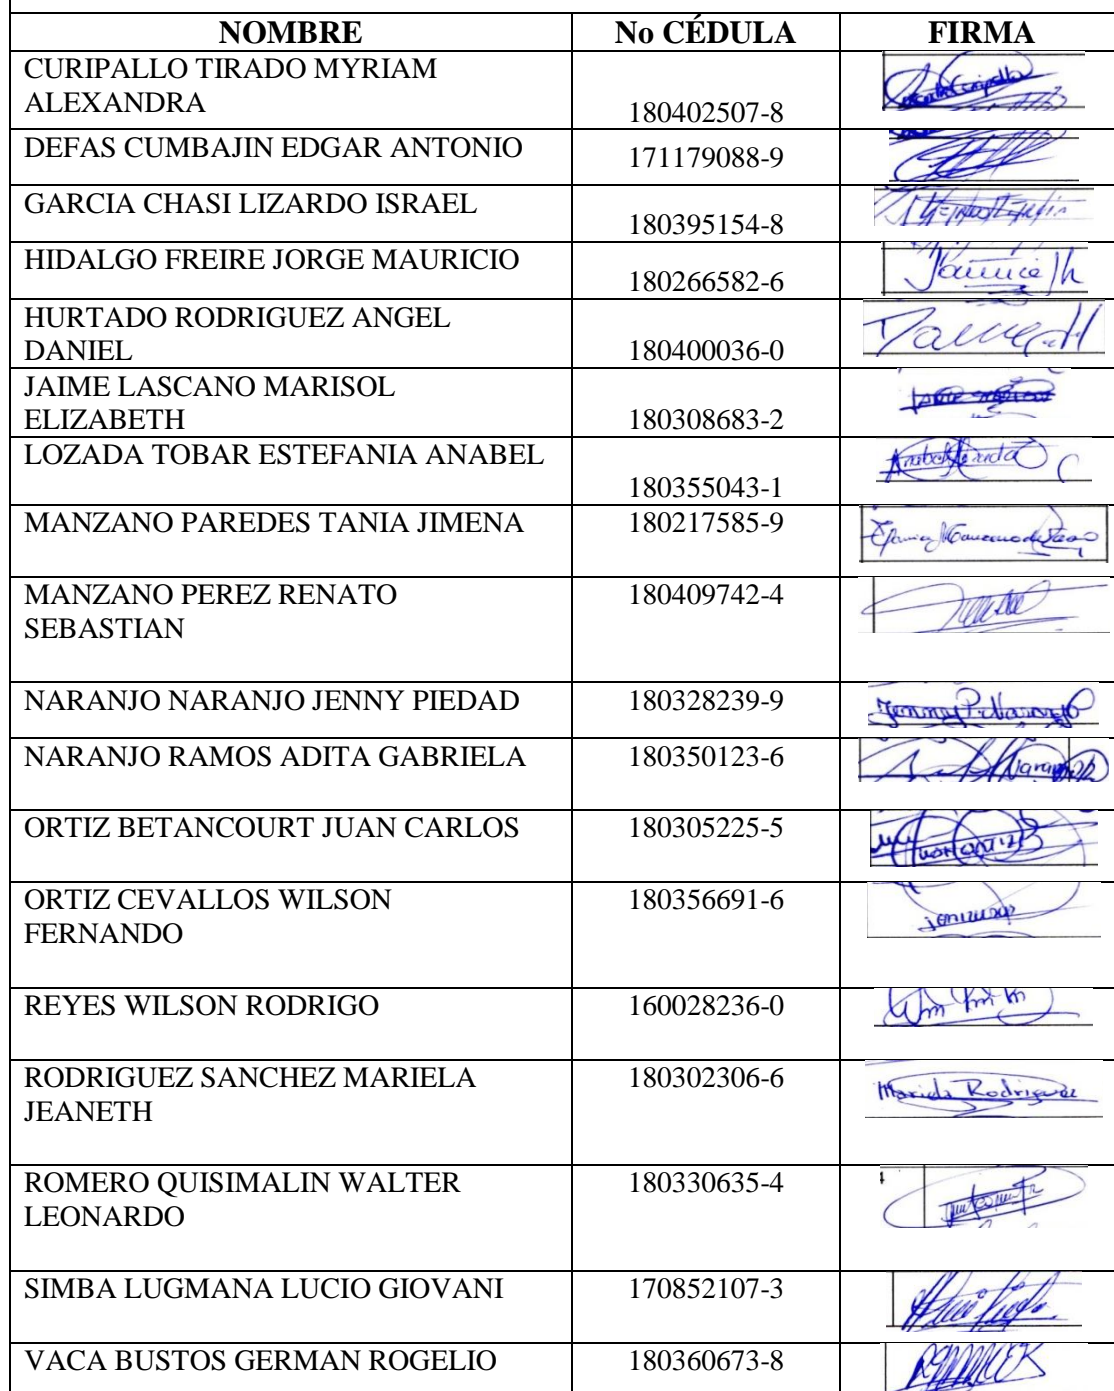 NOMBRE No CÉDULA FIRMA
CURIPALLO TIRADO MYRIAM
ALEXANDRA
180402507-8
DEFAS CUMBAJIN EDGAR ANTONIO 171179088-9
GARCIA CHASI LIZARDO ISRAEL
180395154-8
HIDALGO FREIRE JORGE MAURICIO
180266582-6
HURTADO RODRIGUEZ ANGEL
DANIEL 180400036-0
JAIME LASCANO MARISOL
ELIZABETH 180308683-2
LOZADA TOBAR ESTEFANIA ANABEL
180355043-1
MANZANO PAREDES TANIA JIMENA 180217585-9
MANZANO PEREZ RENATO 180409742-4
SEBASTIAN
NARANJO NARANJO JENNY PIEDAD 180328239-9 Jenny P. Naranjo
NARANJO RAMOS ADITA GABRIELA 180350123-6
ORTIZ BETANCOURT JUAN CARLOS 180305225-5
ORTIZ CEVALLOS WILSON 180356691-6
FERNANDO
REYES WILSON RODRIGO 160028236-0
RODRIGUEZ SANCHEZ MARIELA 180302306-6 Mariela Rodriguez
JEANETH
ROMERO QUISIMALIN WALTER 180330635-4
LEONARDO
SIMBA LUGMANA LUCIO GIOVANI 170852107-3
VACA BUSTOS GERMAN ROGELIO 180360673-8